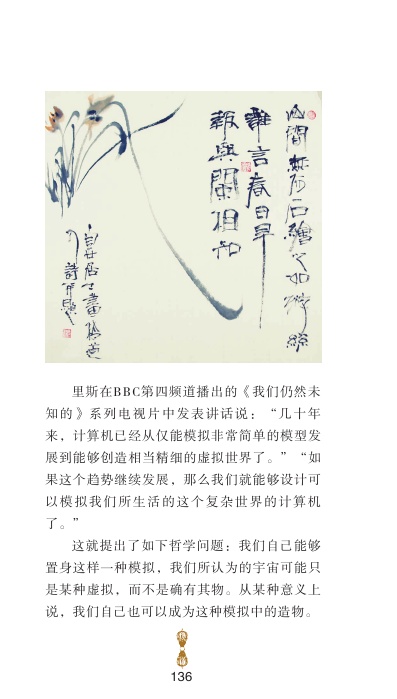 谁言春日早
报与兰相知
里斯在BBC第四频道播出的《我们仍然未
知的》系列电视片中发表讲话说：“几十年
来，计算机已经从仅能模拟非常简单的模型发
展到能够创造相当精细的虚拟世界了。”“如
果这个趋势继续发展，那么我们就能够设计可
以模拟我们所生活的这个复杂世界的计算机
了。”
这就提出了如下哲学问题：我们自己能够
置身这样一种模拟，我们所认为的宇宙可能只
是某种虚拟，而不是确有其物。从某种意义上
说，我们自己也可以成为这种模拟中的造物。
136